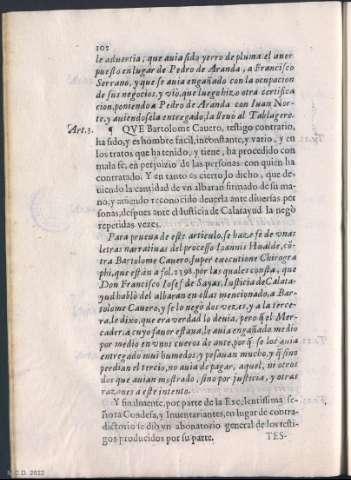 102
le aduertia, que auia sido yerro de pluma el auer
puesto en lugar de Pedro de Aranda, a Francisco
Serrano, y que se auia engañado con la ocupacion
de sus negocios, y viò, que luego hizo otra certifica
cion, poniendo a Pedro de Aranda con Iuan Nor-
te, y auiendosela entregado, la lleuò al Tablagero.
Art. 3. ¶ QVE Bartolome Cauero, testigo contrario,
ha sido, y es hombre facil, inconstante, y vario, y en
los tratos que ha tenido, y tiene, ha procedido con
mala fe, en perjuizio de las personas con quien ha
contratado. Y en tanto es cierto lo dicho, que de-
uiendo la cantidad de vn albaran firmado de su ma-
no, y auiendo reconocido deuerla ante diuersas per
sonas, despues ante el Iusticia de Calatayud la negò
repetidas vezes.
Para prueua de este articulo, se haze fe de vnas
letras narratiuas del processo Ioannis Hualde, cõ-
tra Bartolome Cauero, super executione Chirogra
phi, que están a fol. 2398. por las quales consta, que
Don Francisco Iosef de Sayas, Iusticia de Calata-
yud hablò del albaran en ellas mencionado, a Bar-
tolome Cauero, y se lo negò dos vezes, y a la terce-
ra, le dixo, que era verdad lo deuia, pero q̃ el Mer-
cader, a cuyo fauor estaua, le auia engañado medio
por medio en vnos cueros de ante, por q̃ se los auia
entregado muì humedos y pesauan mucho, y q̃ sino
perdian el tercio, no auia de pagar, aquel, ni otros
dos que auian mostrado, sino por justicia, y otras
razones a este intento.
Y finalmente, por parte de la Excelentissima se-
ñora Condesa, y Inuentariantes, en lugar de contra-
dictorio se diò vn abonatorio general de los testi-
gos producidos por su parte.
TES-
D. 2022